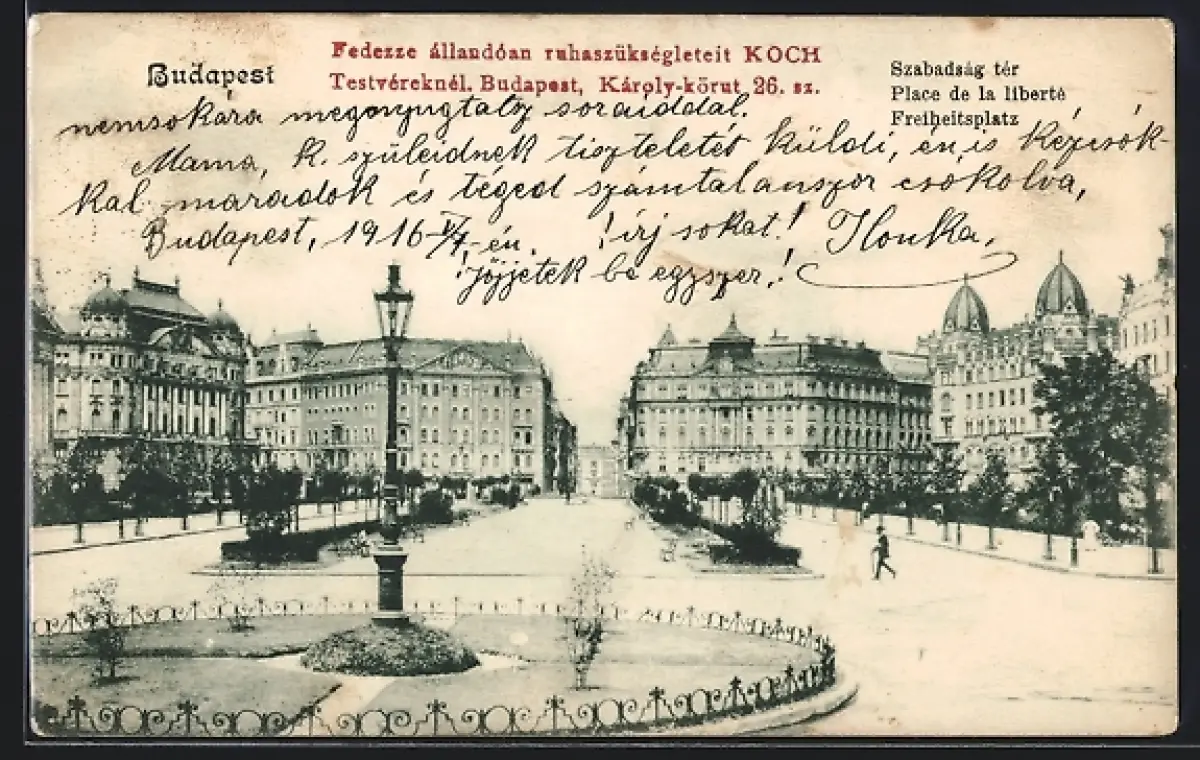 Budapest
Fedezze állandóan ruhaszükségleteit KOCH
Testvéreknél. Budapest, Károly-körut 26. sz.
Szabadság tér
Place de la liberté
Freiheitsplatz
nemsokára megnyugtató soraiddal.
Mama, k. szüleidnek tiszteletét küldi, én is kézcsók-
kal maradok és téged számtalanszor csokolva,
Budapest, 1916 V/7-én. írj sokat! Ilonka,
jöjjetek be egyszer!